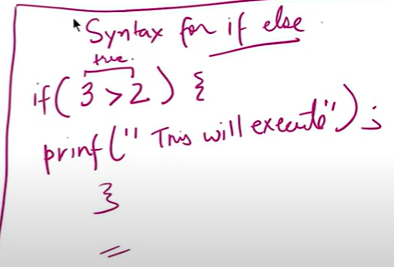 Syntax for if else
true.
if( 3 > 2 ) {
prinf(" This will execute") ;
}